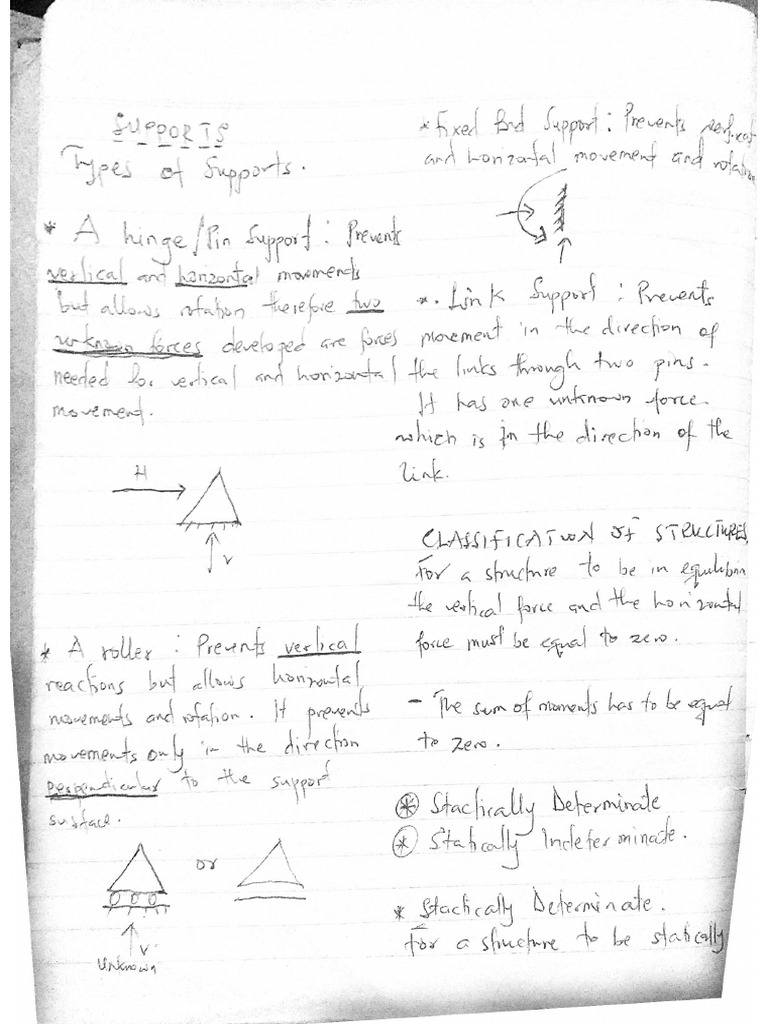 SUPPORTS
Types of Supports.
* A hinge/Pin Support : Prevents
vertical and horizontal movements
but allows rotation therefore two
unknown forces developed are forces
needed for vertical and horizontal
movement.
H
V
* A roller : Prevents vertical
reactions but allows horizontal
movements and rotation. It prevents
movements only in the direction
perpendicular to the support
surface.
or
V
Unknown
* Fixed End Support : Prevents vertical
and horizontal movement and rotation
*. Link Support : Prevents
movement in the direction of
the links through two pins.
It has one unknown force.
which is in the direction of the
link.
CLASSIFICATION OF STRUCTURES.
For a structure to be in equilibrium
the vertical force and the horizontal
force must be equal to zero.
- The sum of moments has to be equal
to zero.
* Stactically Determinate
* Statically Indeterminate.
* Stactically Determinate.
For a structure to be statically